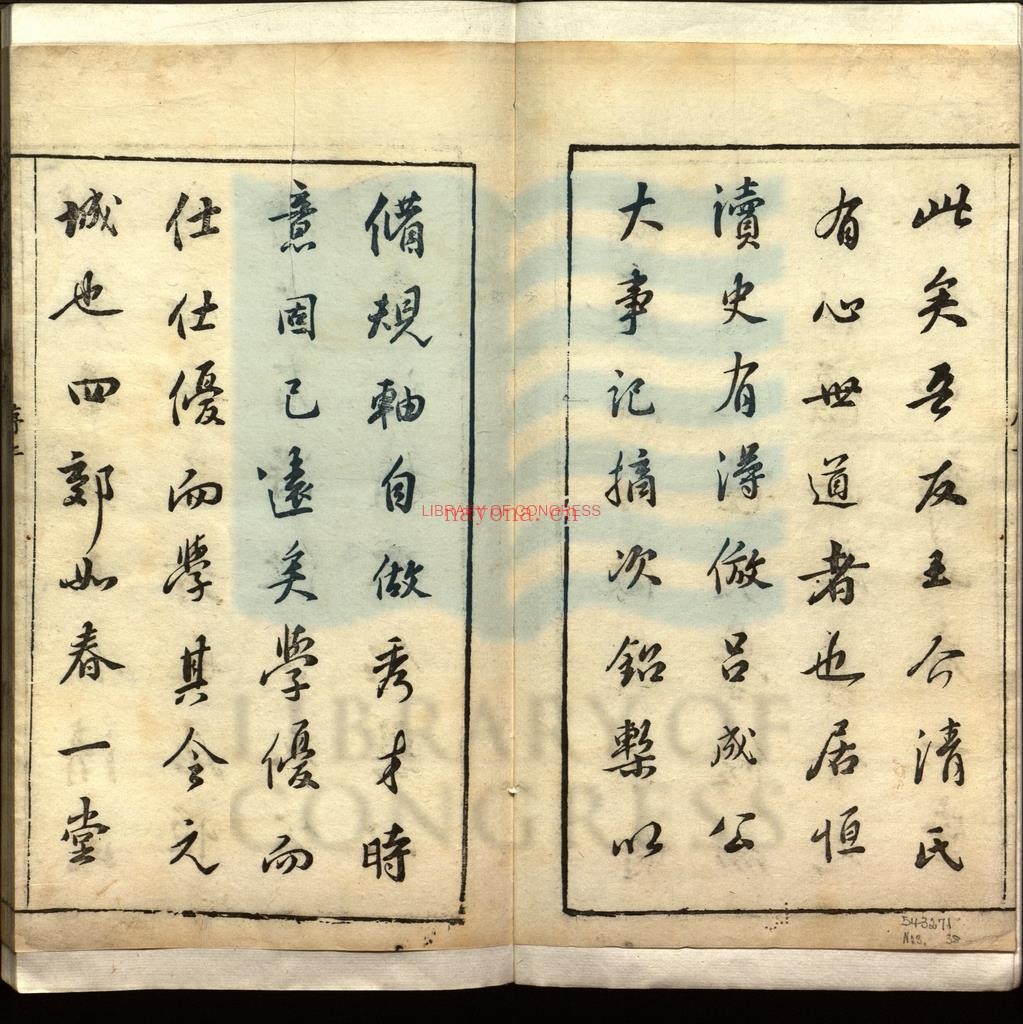 此矣吾友王介清氏
有心世道者也居恒
讀史有得倣呂成公
大事記摘次鉛槧以
備規軸自做秀才時
意固已遠矣學優而
仕仕優而學其令元
城也四郊如春一堂
序二
LIBRARY OF CONGRESS
nayona.cn
LIBRARY OF
CONGRESS
543271
Nos. 38